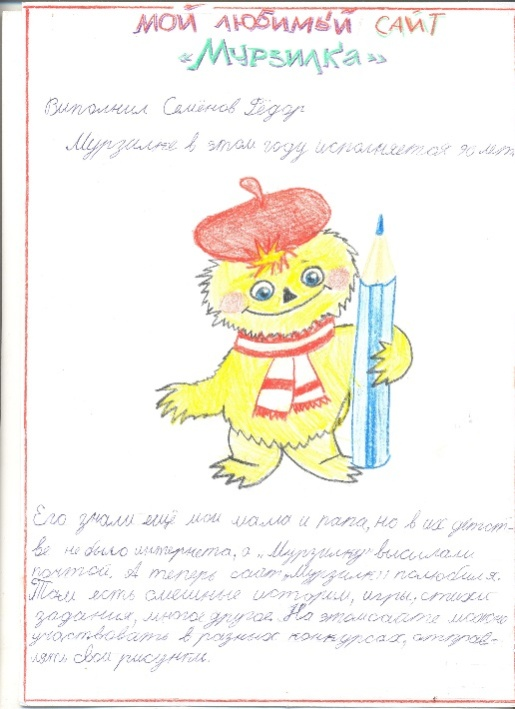 МОЙ ЛЮБИМЫЙ САЙТ
«МУРЗИЛКА»
Виполнил Семёнов Фёдор
Мурзилке в этом году исполняется 90 лет.
Его знали ещё мои мама и папа, но в их детст-
ве не было интернета, а „Мурзилку" висилали
почтой. А теперь сайт „Мурзилки полюбил я.
Там есть смешные истории, игры, стихи
задания, многое другое. На этом сайте можно
участвовать в разных конкурсах, отправ-
ляя свои рисунки.